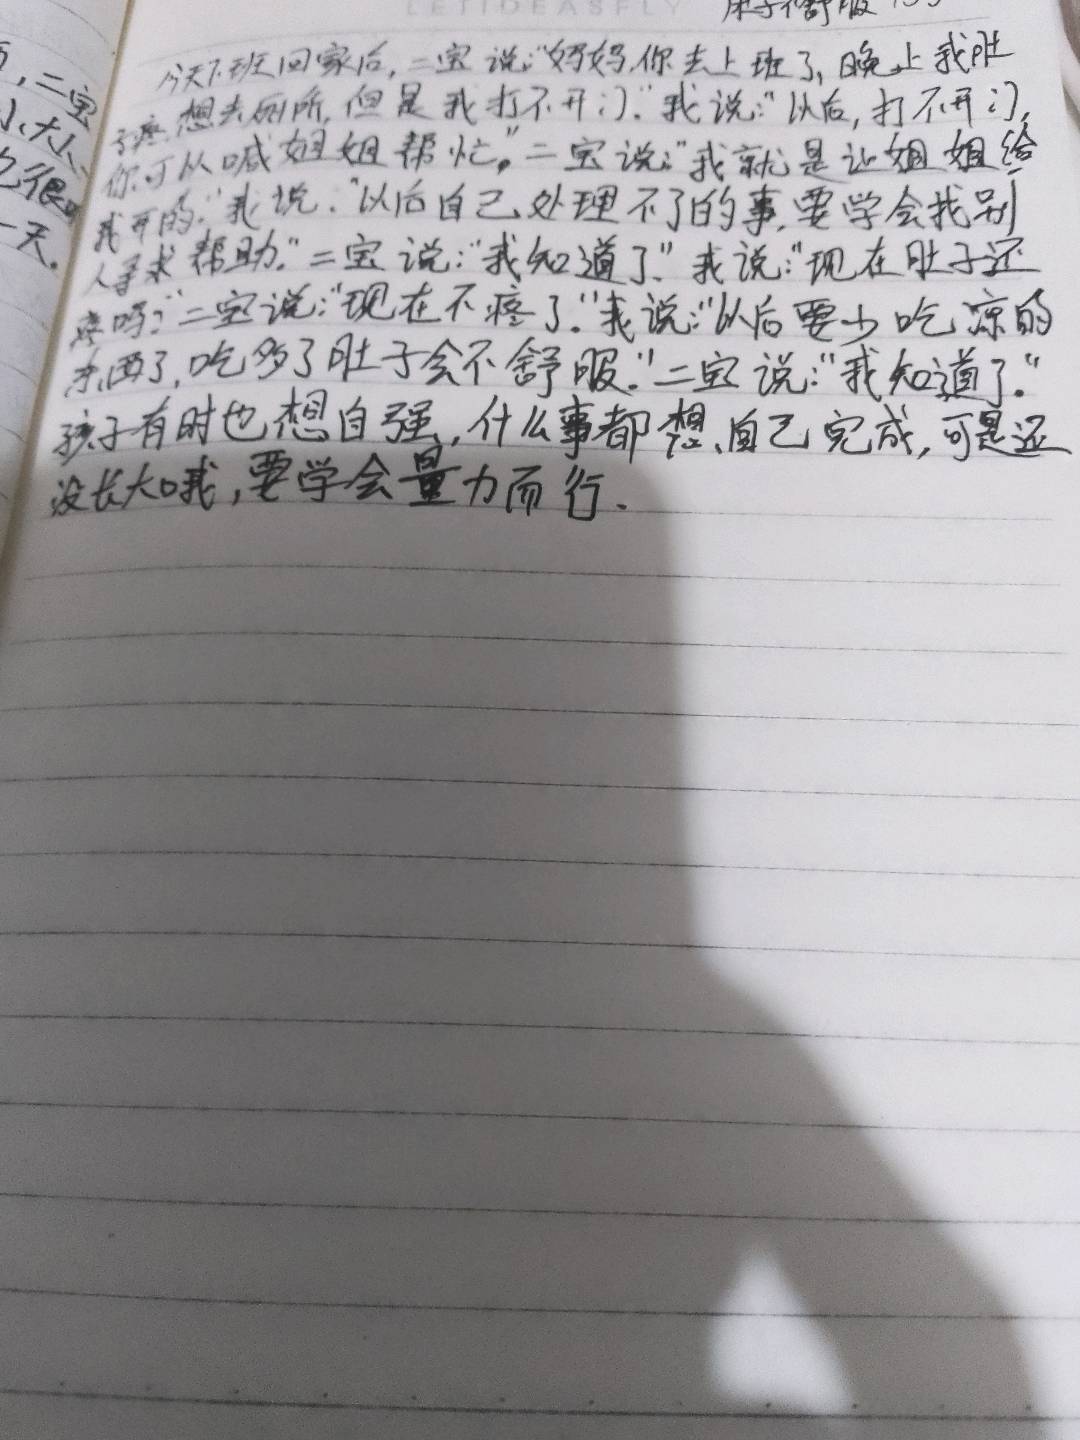 LETIDEASFLY
今天下班回家后,二宝说:"妈妈,你去上班了,晚上我肚
子疼想去厕所,但是我打不开门."我说:"以后,打不开门,
你可以喊姐姐帮忙。"二宝说:"我就是让姐姐给
我开的."我说:"以后自己处理不了的事,要学会找别
人寻求帮助."二宝说:"我知道了."我说:"现在肚子还
疼吗?"二宝说:"现在不疼了."我说:"以后要少吃凉的
东西了,吃多了肚子会不舒服."二宝说:"我知道了."
孩子有时也想自强,什么事都想自己完成,可是还
没长大哦,要学会量力而行.
,二宝
大小
很
一天.